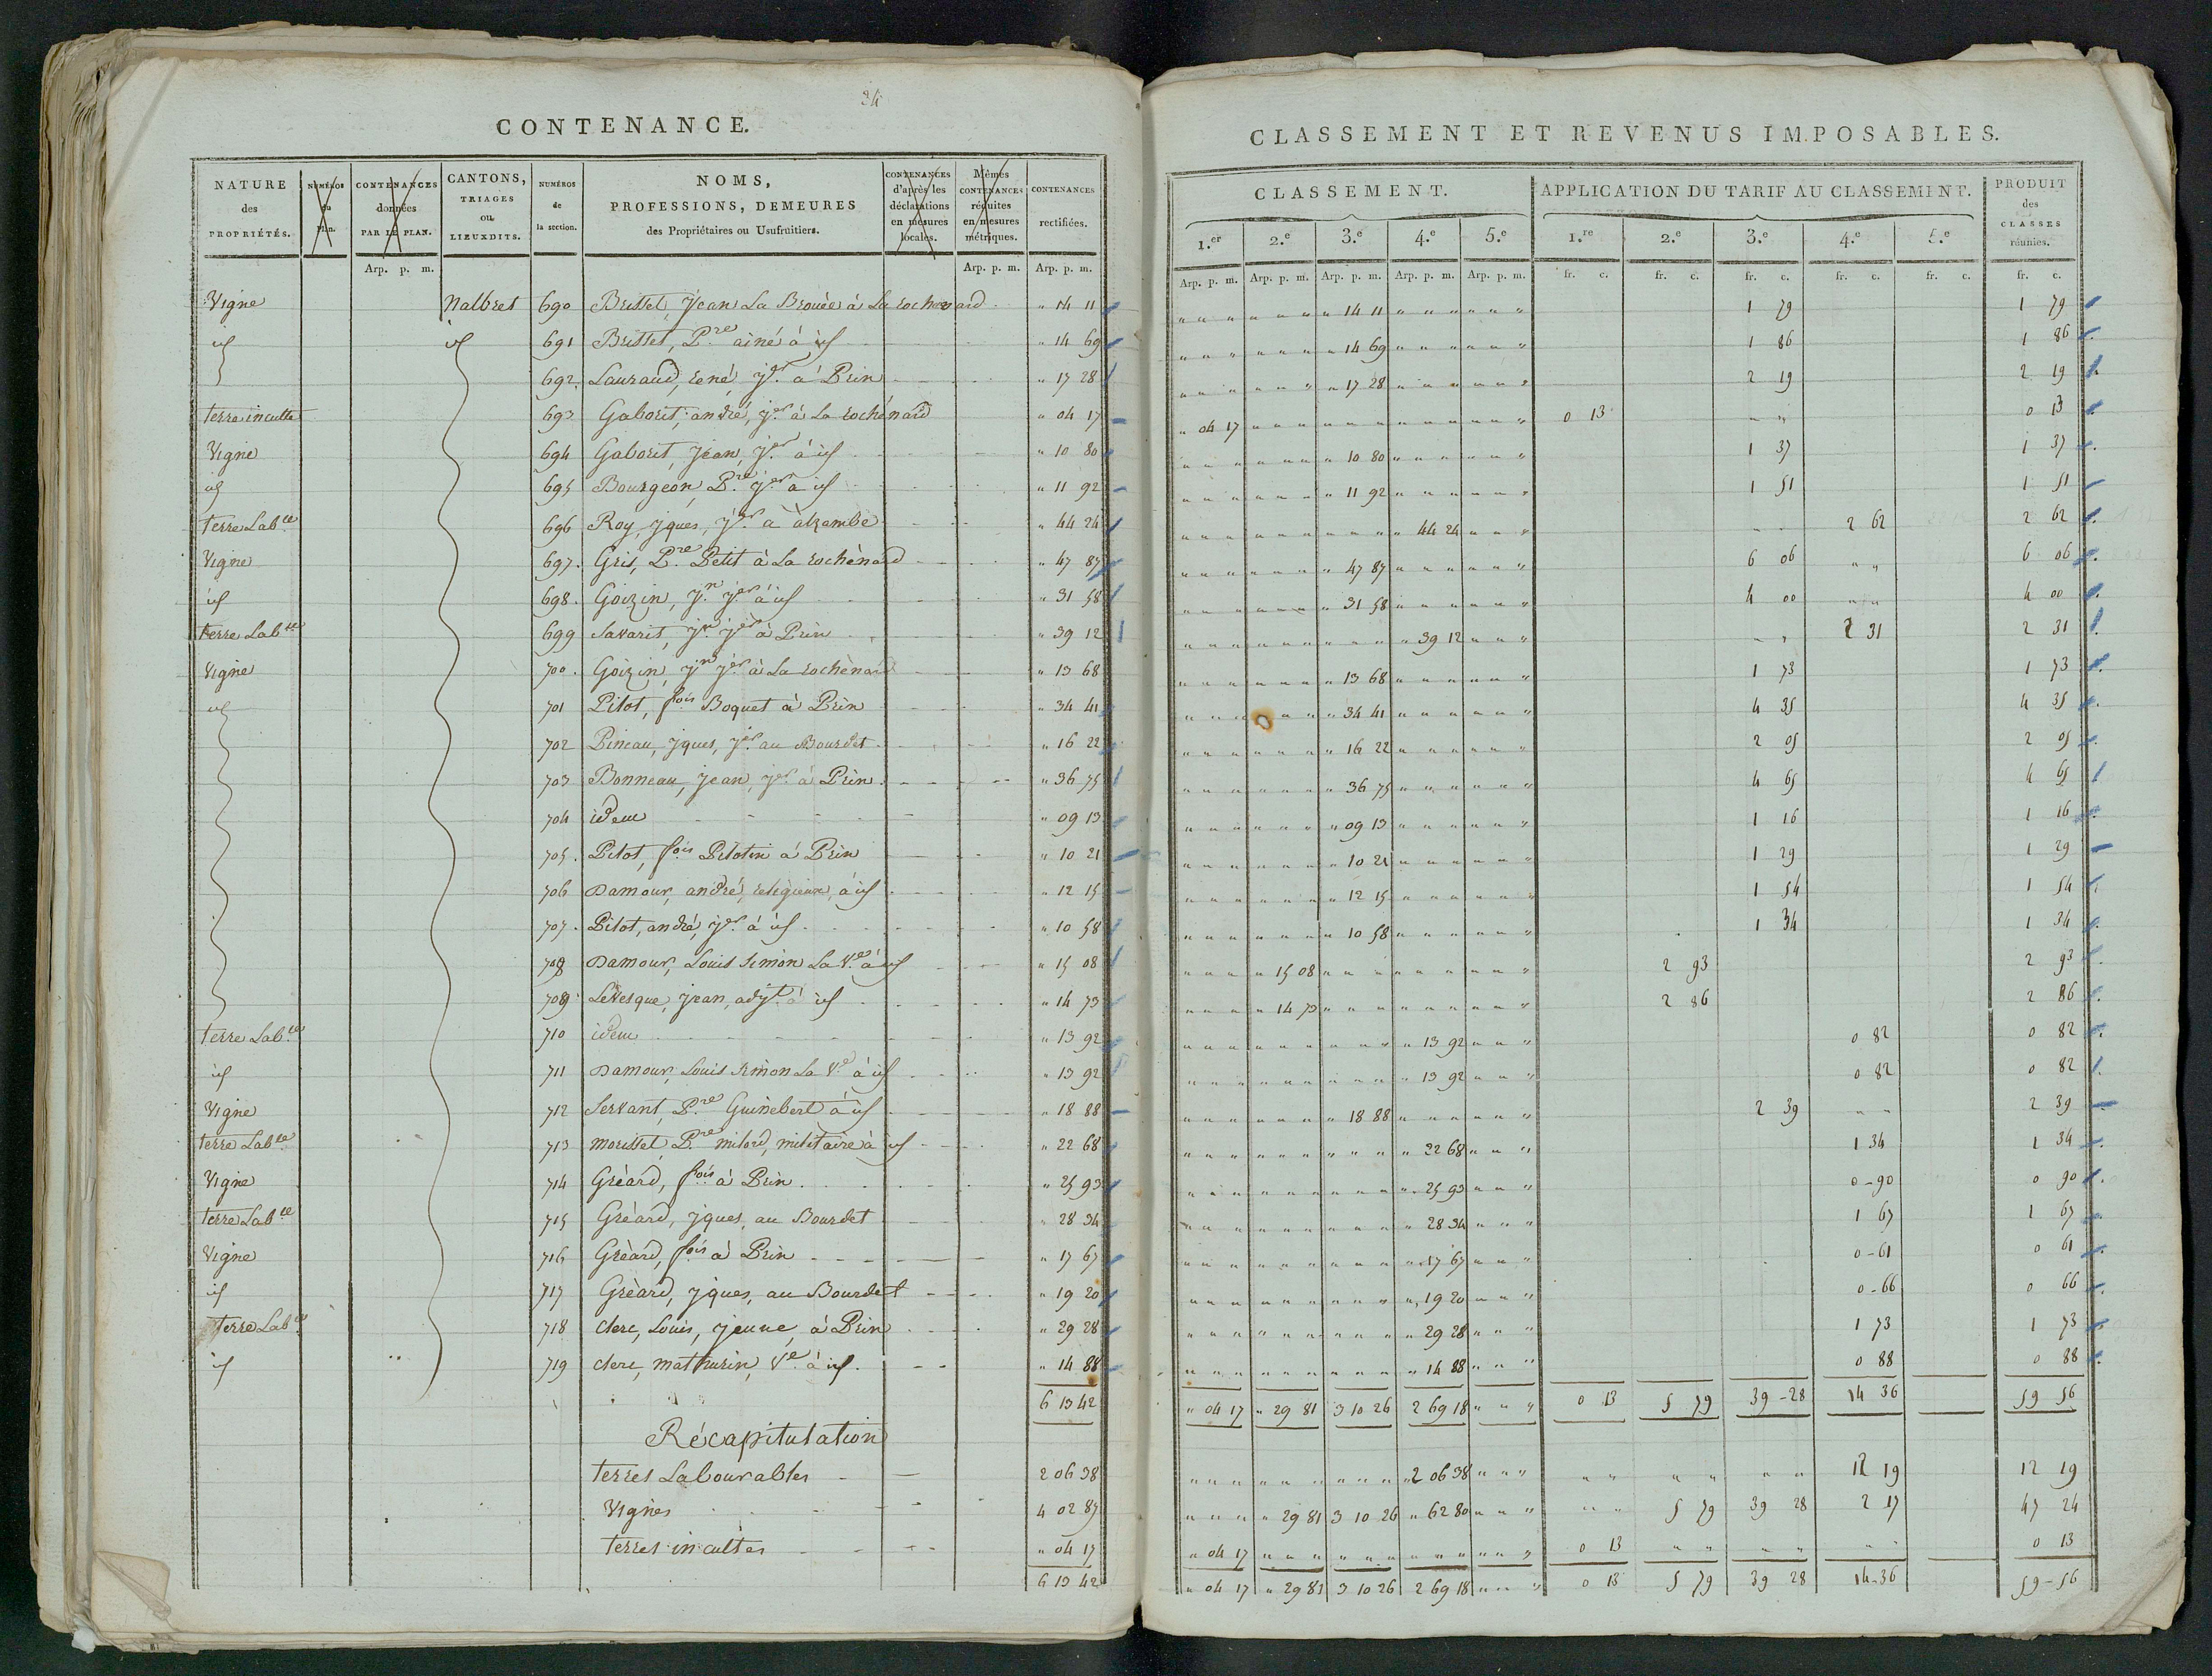 24
CONTENANCE.
NATURE des PROPRIÉTÉS. NUMÉROS du Plan. CONTENANCES données PAR LE PLAN. CANTONS, TRIAGES ou LIEUXDITS. NUMÉROS de la section. NOMS, PROFESSIONS, DEMEURES des Propriétaires ou Usufruitiers. CONTENANCES d'après les déclarations en mesures locales. Mêmes CONTENANCES réduites en mesures métriques. CONTENANCES rectifiées.
Arp. p. m. Arp. p. m. Arp. p. m.
Vigne Nalbret 690 Brisset, Jean La Brouée à La rochenard " 14 11
id id 691 Brisset, Pre ainé à id " 14 69
692. Lauraud, rené jer à Prin " 17 28
terre inculte 693 Gaborit, andré, jer à La rochénard " 04 17
Vigne 694 Gaborit, Jean, jer à id " 10 80
id 695 Bourgeon, Pre jer à id " 11 92
terre Labce 696 Roy, jques, jer à " 44 24
Vigne 697. Gris, Pre Petit à La rochènard " 47 87
id 698. Goizin, jn jer à id " 31 58
terre Labce 699 Savarit, jn jer à Prin " 39 12
Vigne 700. Goizin, jn jer à La rochènard " 13 68
id 701 Pitot, fois Boquet à Prin " 34 41
702 Pineau, jques, jer au Bourdet " 16 22
703 Bonneau, jean, jer à Prin " 36 75
704 idem " 09 13
705. Pitot, fois Pitotin à Prin " 10 21
706 Damour, andré, religieux, à id " 12 15
707. Pitot, andré, jer à id " 10 58
708 Damour, Louis Simon La Ve à id " 15 08
709 Levesque, jean, adjt à id " 14 73
terre Labce 710 idem " 13 92
id 711 Damour, Louis Simon La Ve à id " 13 92
Vigne 712 Servant, Pre Guinebert à id " 18 88
terre Labce 713 morisset, Pre milord, militaire à id " 22 68
Vigne 714 Grèard, fois à Prin " 25 93
terre Labce 715 Grèard, jques, au Bourdet " 28 34
Vigne 716 Grèard, fois à Prin " 17 67
id 717 Grèard, jques, au Bourdet " 19 20
terre Labce 718 clerc, Louis, jeune, à Prin " 29 28
id 719 clerc, mathurin, Ve à id " 14 88
6 13 42
Récapitulation
terres Labourables 2 06 38
Vignes 4 02 87
terres incultes " 04 17
6 13 42
CLASSEMENT ET REVENUS IMPOSABLES.
CLASSEMENT. APPLICATION DU TARIF AU CLASSEMENT. PRODUIT des CLASSES réunies.
1.er 2.e 3.e 4.e 5.e 1.re 2.e 3.e 4.e 5.e
Arp. p. m. Arp. p. m. Arp. p. m. Arp. p. m. Arp. p. m. fr. c. fr. c. fr. c. fr. c. fr. c. fr. c.
" 14 11 1 79 1 79
" 14 69 1 86 1 86
" 17 28 2 19 2 19
" 04 17 0 13 0 13
" 10 80 1 37 1 37
" 11 92 1 51 1 51
" 44 24 2 62 2 62
" 47 87 6 06 6 06
" 31 58 4 00 4 00
" 39 12 2 31 2 31
" 13 68 1 73 1 73
" 34 41 4 35 4 35
" 16 22 2 05 2 05
" 36 75 4 65 4 65
" 09 13 1 16 1 16
" 10 21 1 29 1 29
" 12 15 1 54 1 54
" 10 58 1 34 1 34
" 15 08 2 93 2 93
" 14 73 2 86 2 86
" 13 92 0 82 0 82
" 13 92 0 82 0 82
" 18 88 2 39 2 39
" 22 68 1 34 1 34
" 25 93 0-90 0 90
" 28 34 1 67 1 67
" 17 67 0-61 0 61
" 19 20 0-66 0 66
" 29 28 1 73 1 73
" 14 88 0 88 0 88
" 04 17 " 29 81 3 10 26 2 69 18 " " " 0 13 5 79 39-28 14 36 59 56
2 06 38 12 19 12 19
" 29 81 3 10 26 " 62 80 5 79 39 28 2 17 47 24
" 04 17 0 13 0 13
" 04 17 " 29 81 3 10 26 2 69 18 " " " 0 13 5 79 39 28 14-36 59-56